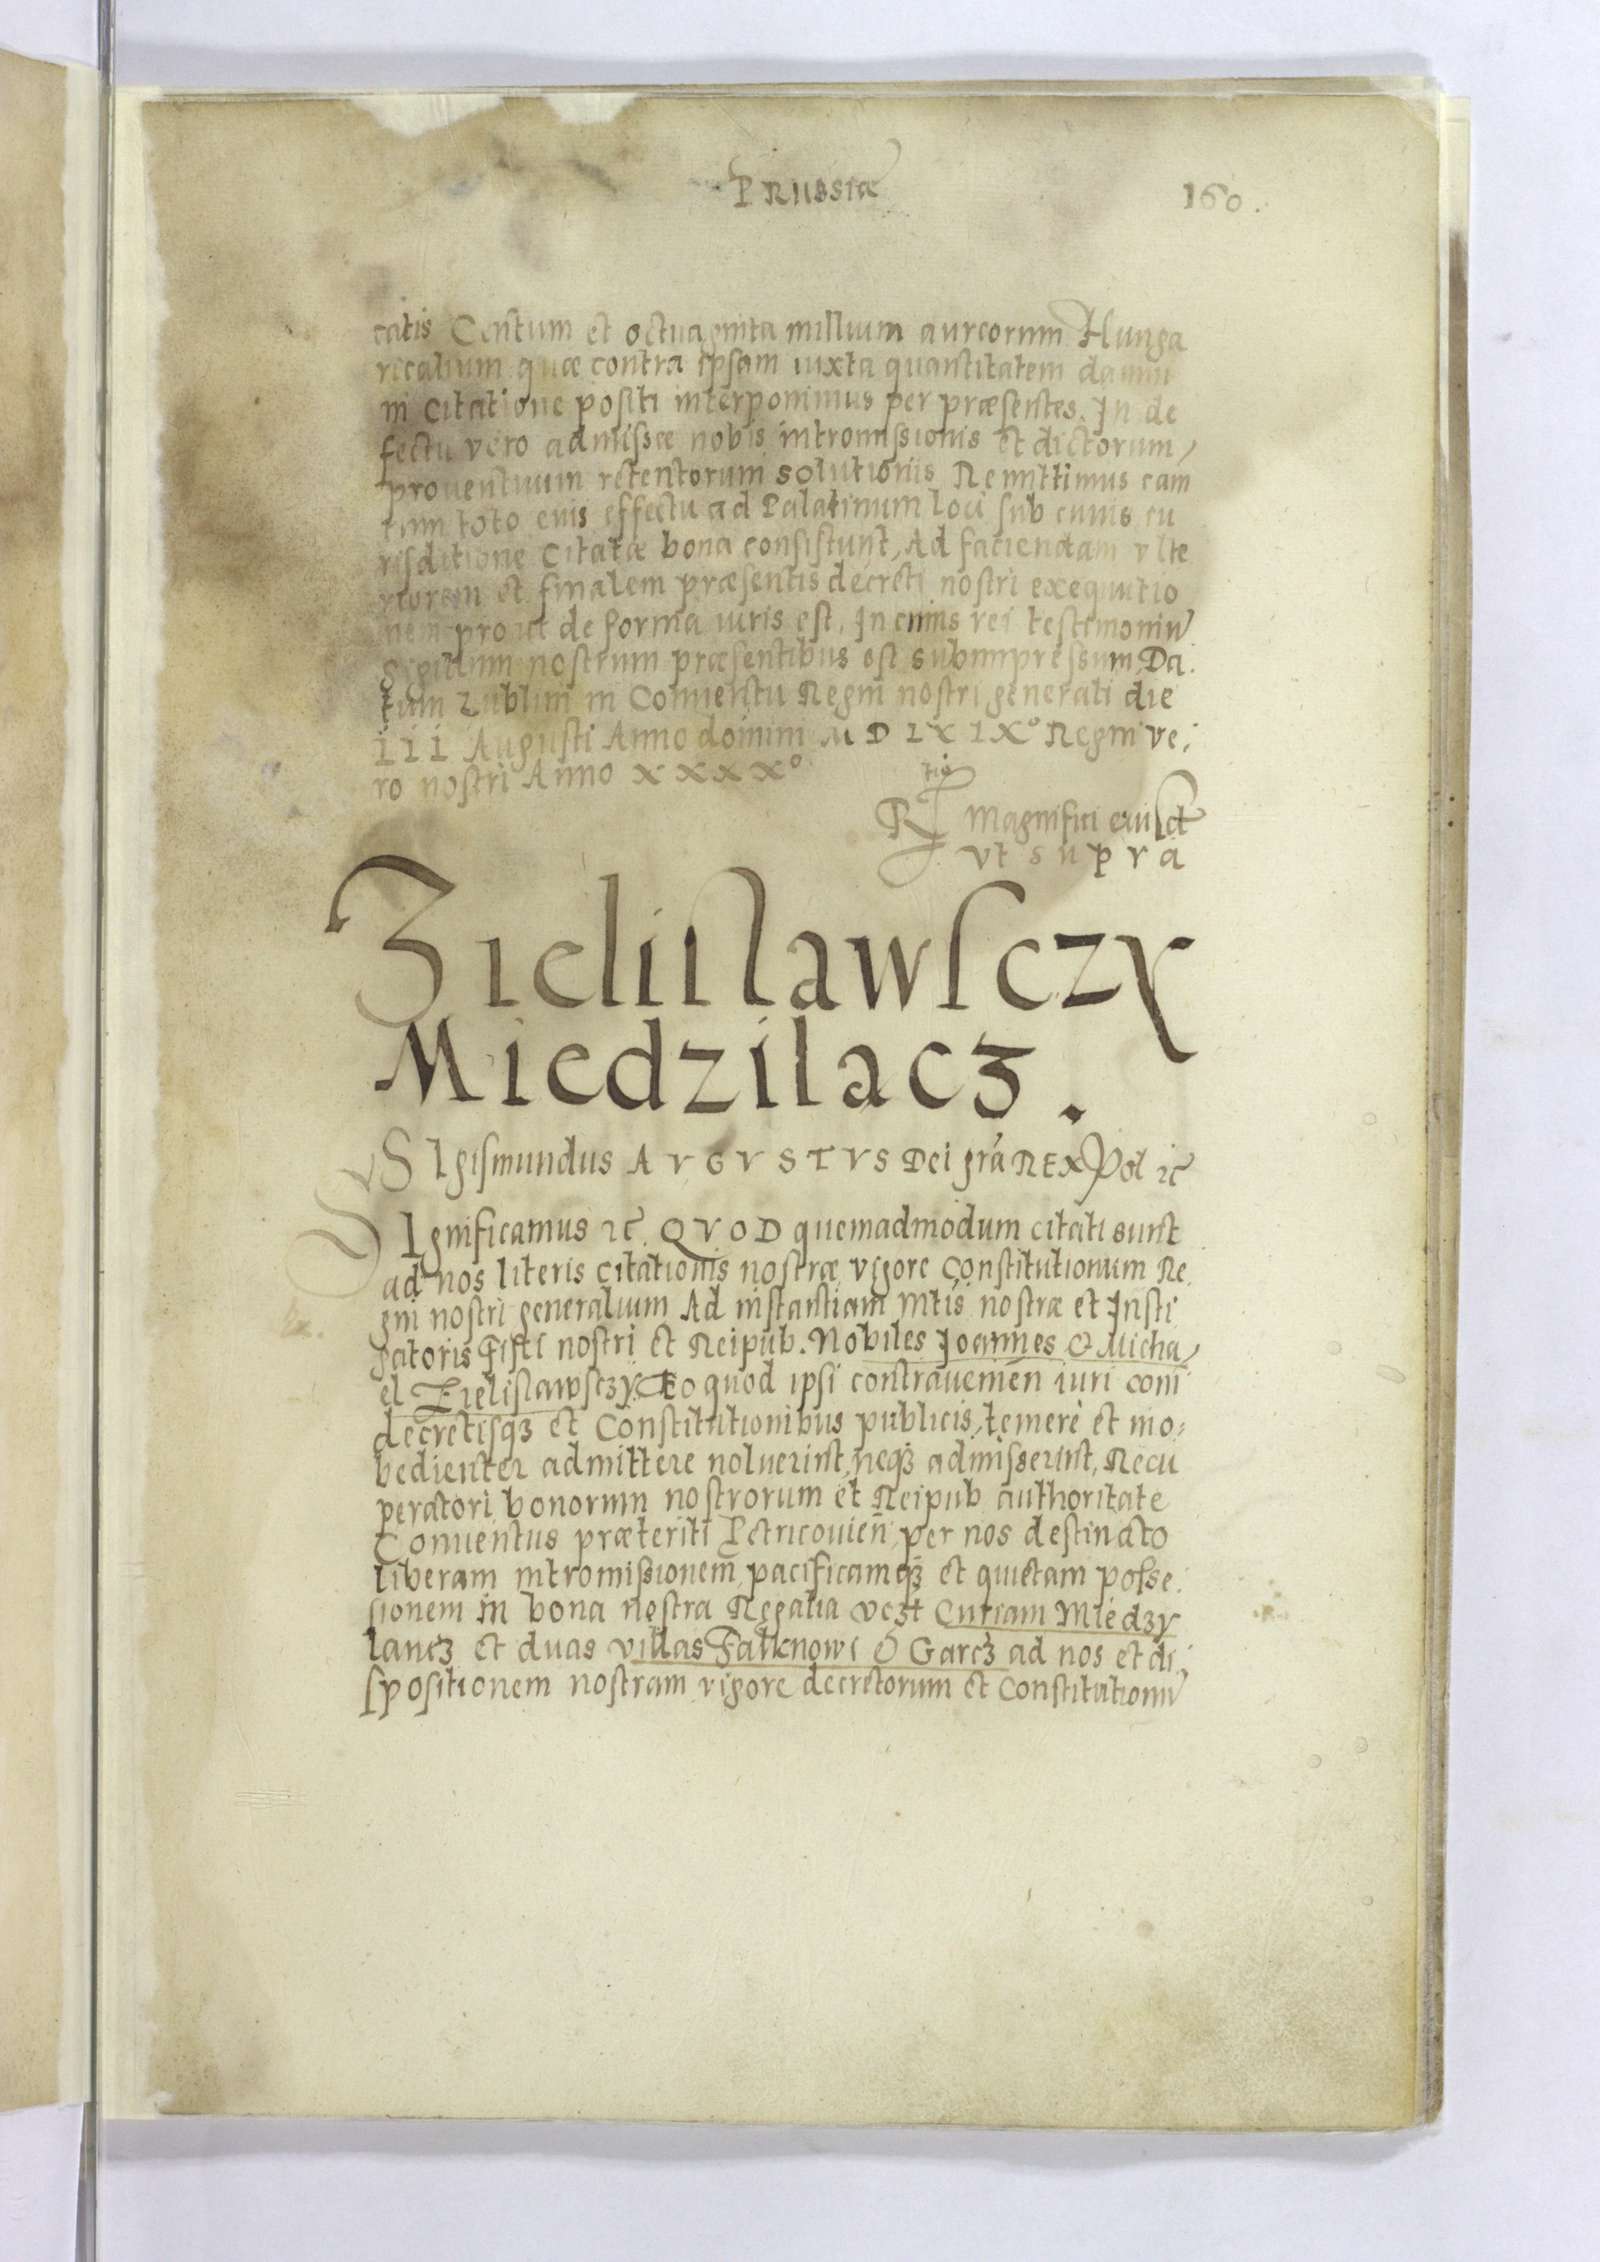 PRussiæ
160.
catis Centum et octuaginta millium aureorum Hunga
ricalium quæ contra ipsam iuxta quantitatem damni
in citatione positi interponimus per præsentes. In de
fectu vero admissæ nobis intromissionis et dictorum,
prouentuum retentorum solutionis Remittimus eam
cum toto eius effectu ad Palatinum loci sub cuius iu
risditione Citatæ bona consistunt, Ad faciendam vlte
riorem et finalem præsentis decreti nostri exequutio
nem prout de forma iuris est. In cuius rei testimoniu
Sigillum nostrum præsentibus est subimpressum, Da:
tum Lublini in Conuentu Regni nostri generali die
iii Augusti Anno domini M D LX IX° Regni ve:
ro nostri Anno XXXX°
R tio Magnifici eiusd
vt supra
Zieliſlawſczy
Miedzilacz.
SIgismundus AVGVSTVS Dei gra REX Pol ꝛc
SIgnificamus ꝛc. QVOD quemadmodum citati sunt
ad nos literis citationis nostræ vigore Constitutionum Re
gni nostri generalium Ad instantiam Mtis nostræ et Insti
gatoris Fisci nostri et Reipub. Nobiles Ioannes & Micha,
el Zielislawsczy. Eo quod ipsi contrauenien iuri com
decretisqz et Constitutionibus publicis, temere et ino:
bedienter admittere noluerint, neqz admisserint, Recu
peratori bonorum nostrorum et Reipub authoritate
Conuentus præteriti Petricouien per nos destinato
liberam intromissionem pacificamqz et quietam posse:
sionem in bona nostra Regalia vczt Curiam Miedzy
lancz et duas villas Falknowi & Garcz ad nos et di,
spositionem nostram vigore decretorum et Constitutionu